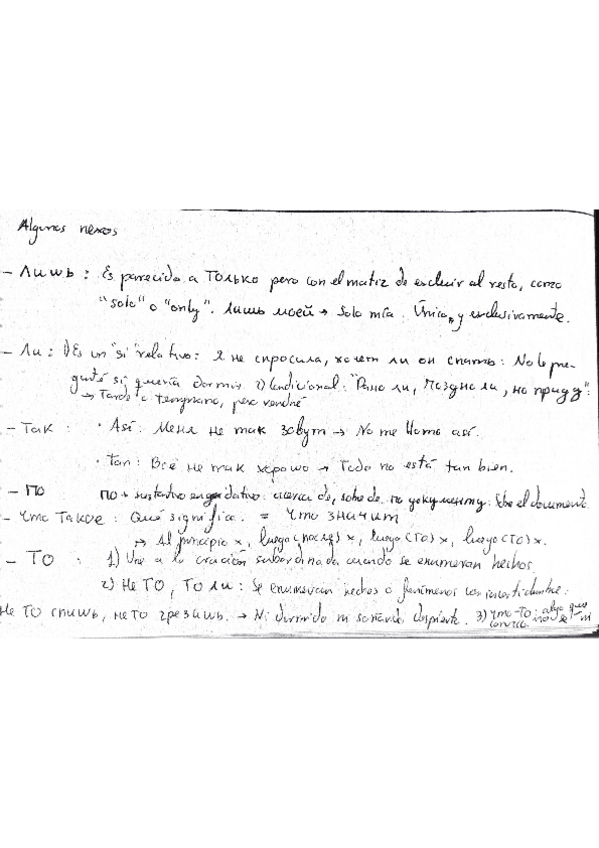 Algunos nexos
- Лишь : Es parecido a ТОЛЬКО pero con el matiz de excluir al resto, como
"solo" o "only". Лишь моей → Solo mía. Única y exclusivamente.
- Ли : 1) Es un "si" relativo: Я не спросила, хочет ли он спать: No le pre-
gunté si quería dormir. 2) Condicional: "Рано ли, поздно ли, но приду":
→ Tarde o temprano, pero vendré
- Так : • Así: Меня не так зовут → No me llamo así.
• Tan: Всё не так хорошо → Todo no está tan bien.
- ПО по + sustantivo en dativo: acerca de, sobre de. по документу: Sobre el documento
- Что такое : Qué significa. = Что значит
→ Al principio x, luego (после) x, luego (то) x, luego (то) x.
- ТО : 1) Une a la oración subordinada cuando se enumeran hechos.
2) Не ТО, ТО ли : Se enumeran hechos o fenómenos con incertidumbre:
Не ТО спишь, не то грезишь. → Ni dormido ni soñando despierto. 3) Что-ТО: algo que
no se